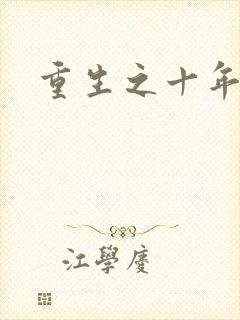 重生之十年
江學慶